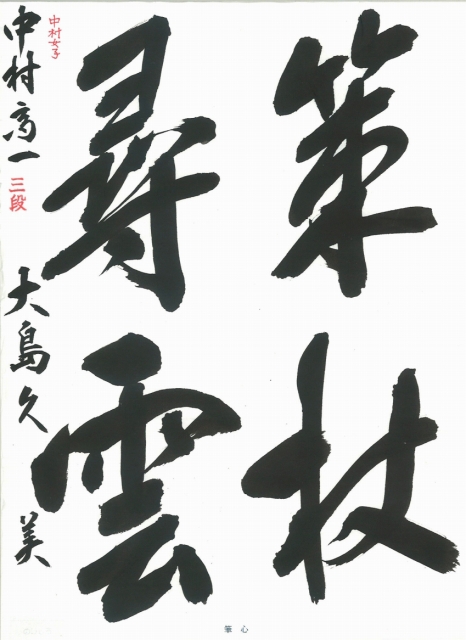 策杖
尋雲
中村女子
中村高一 三段 大島久美
筆心